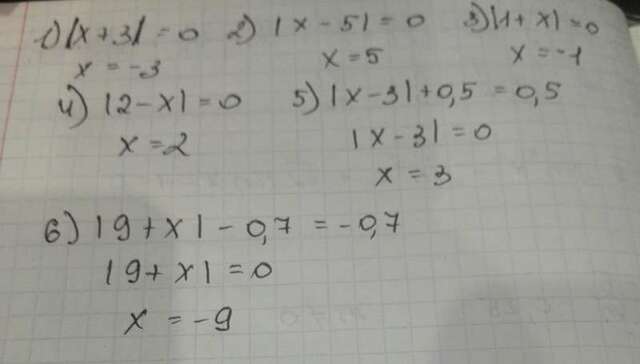 1) |x+3| = 0 2) |x-5| = 0 3) |1+x| = 0
x = -3 x = 5 x = -1
4) |2-x| = 0 5) |x-3|+0,5 = 0,5
x = 2 |x-3| = 0
x = 3
6) |9+x| - 0,7 = -0,7
|9+x| = 0
x = -9